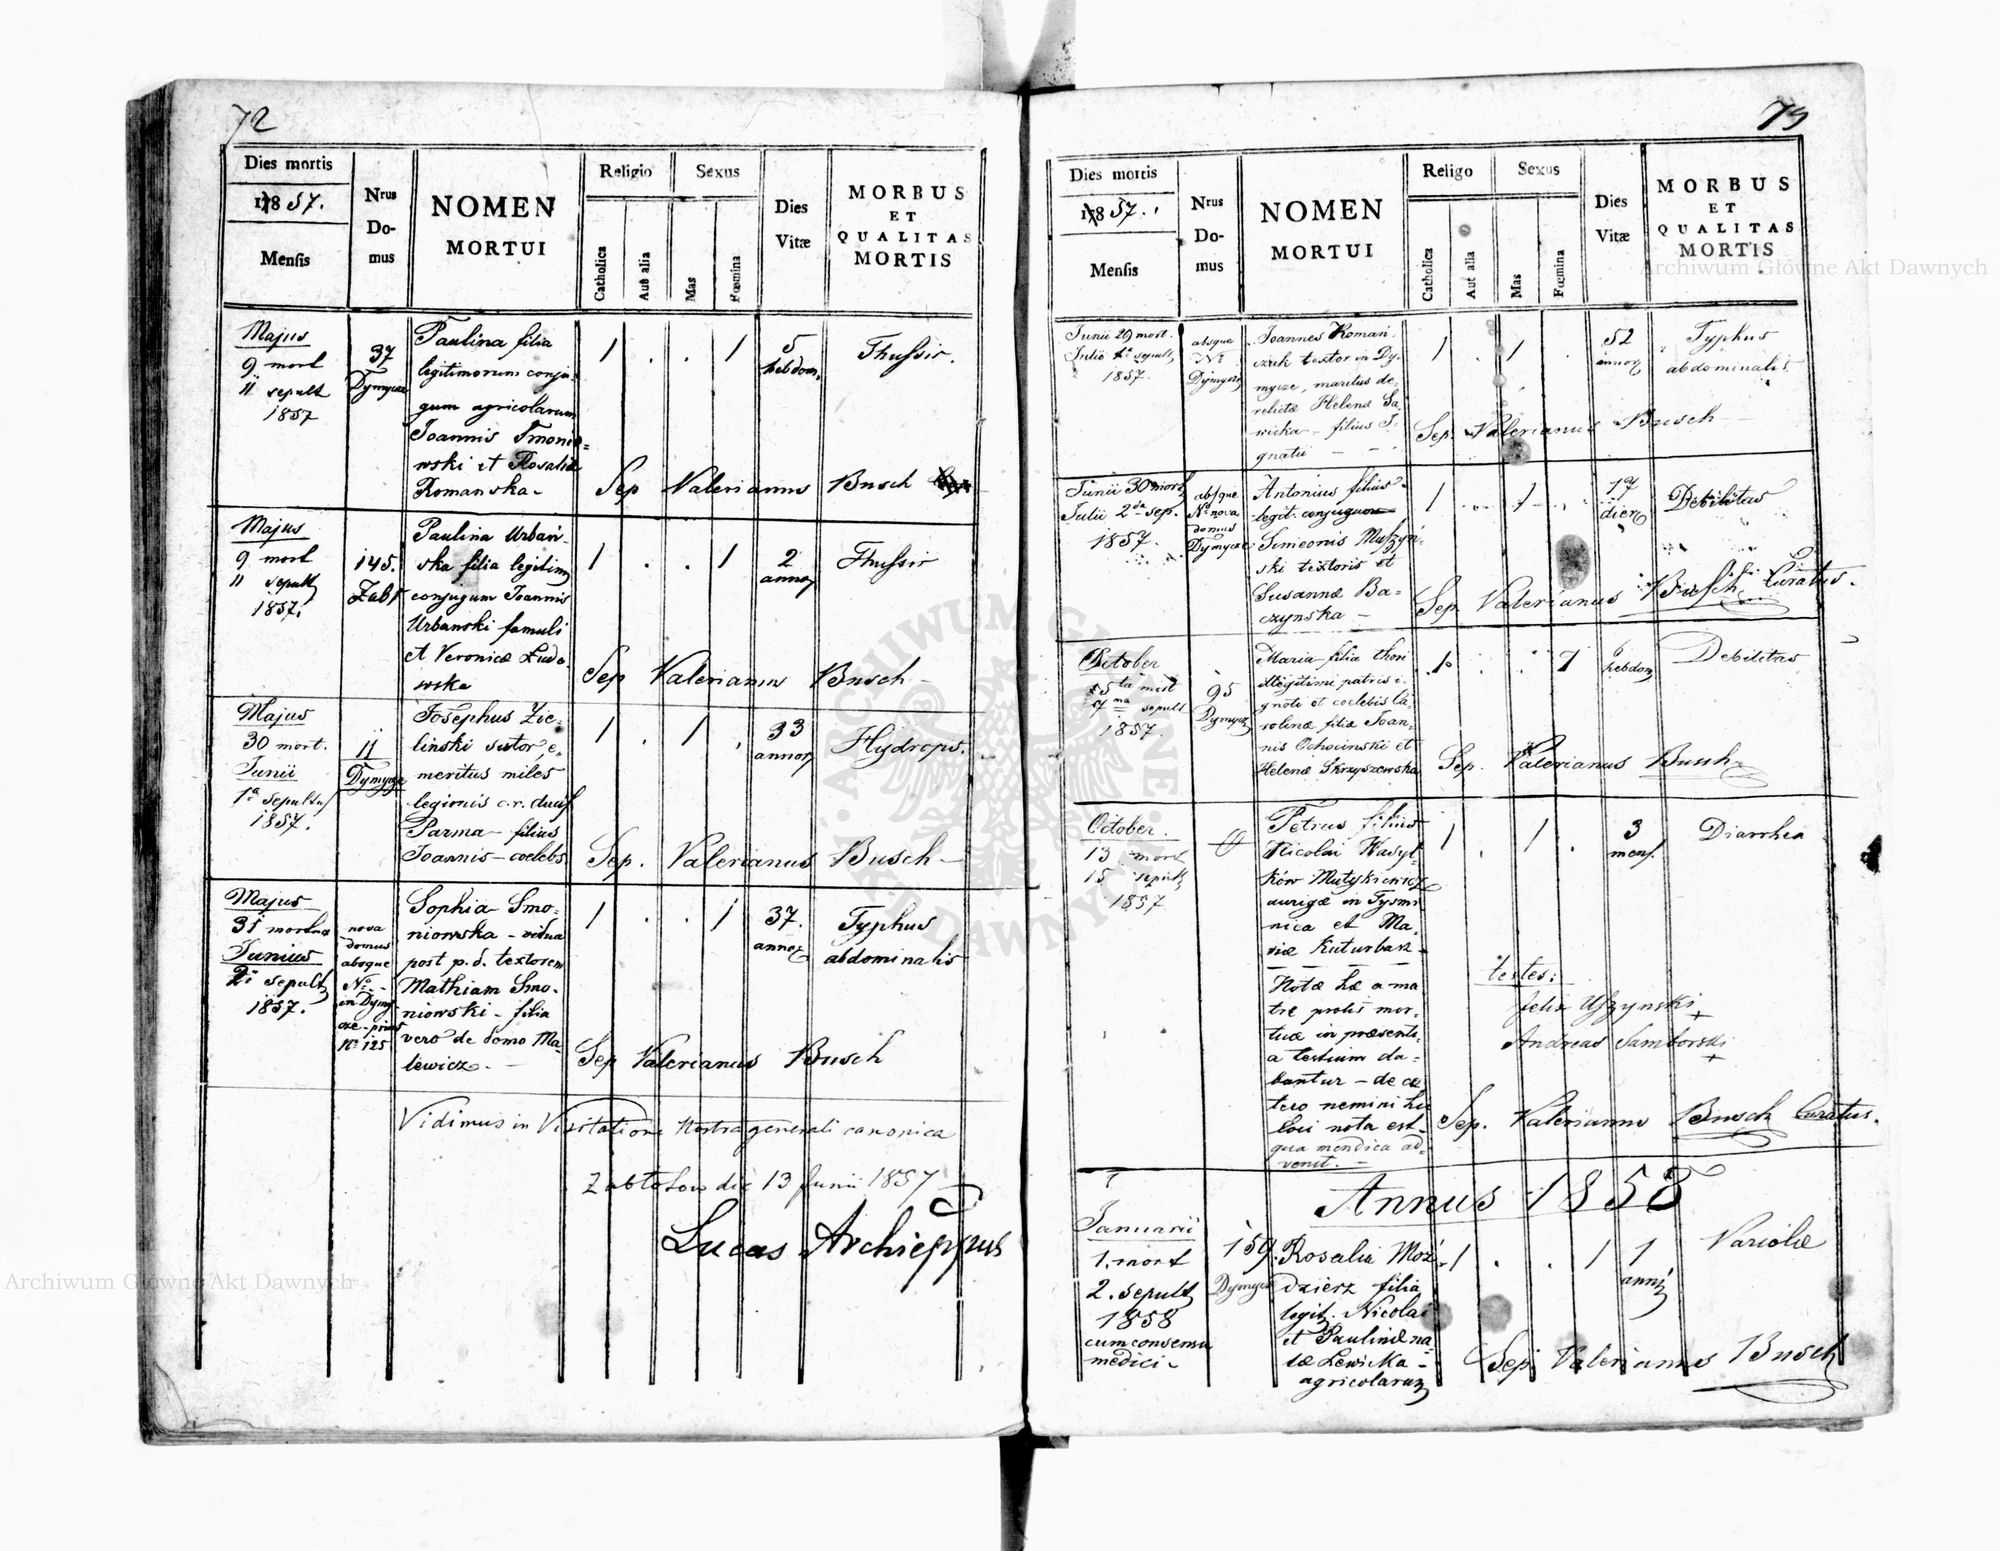 72
Dies mortis
1857.
Mensis
Nrus
Do-
mus
NOMEN
MORTUI
Religio
Catholica
Aut alia
Sexus
Mas
Fœmina
Dies
Vitæ
MORBUS
ET
QUALITAS
MORTIS
Majus
9 mort
11 sepult
1857
37
Dymycze
Paulina filia
legitimorum conju-
gum agricolarum
Joannis Smonio=
wski et Rosalia
Romanska-
1 . . 1
5
hebdom.
Thussis.
Sep Valerianus Busch
Majus
9 mort
11 sepult
1857.
145.
Zabł
Paulina Urbań-
ska filia legitim
conjugum Joannis
Urbanski famuli
et Veronicæ Ludo
wska
1 . . 1
2
annor
Thussis
Sep Valerianus Busch-
Majus
30 mort.
Junii
1a sepultus
1857.
11
Dymycze
Josephus Zie=
linski sutor, e,
meritus miles
legionis c.r. ducis
Parma- filius
Joannis- coelebs
1 . 1 .
33
annor
Hydrops.
Sep. Valerianus Busch-
Majus
31 mortua
Junius
2i sepult
1857.
nova
domus
absque
No -
in Dymy
cze- prius
No 125
Sophia Smo-
niowska - vidua
post p.d. textorem
Mathiam Smo-
niowski - filia
vero de domo Ma-
lewicz. -
1 . . 1
37.
annor
Typhus
abdominalis
Sep Valerianus Busch
Vidimus in Visitatione Nostra generali canonica
Zabłotow die 13 Junii 1857
Lucas Archieppus
73
Dies mortis
1857.
Mensis
Nrus
Do-
mus
NOMEN
MORTUI
Religo
Catholica
Aut alia
Sexus
Mas
Fœmina
Dies
Vitæ
MORBUS
ET
QUALITAS
MORTIS
Junii 29 mort.
Julii 1a sepult
1857.
absque
No
Dymycze
Joannes Romań-
czuk textor in Dy-
mycze, maritus de-
relictæ Helenæ Sa-
wicka - filius I-
gnatii - -
1 . 1 .
52
annor
Typhus
abdominalis
Sep. Valerianus Busch-
Junii 30 mort
Julii 2da sep.
1857.
absque
No nova
domus
Dymycze
Antonius filius
legit. conjugum
Simeonis Muszyń-
ski textoris et
Susannæ Ba-
czynska -
1 . 1 .
17
dier
Debilitas
Sep. Valerianus Busch Curatus.
October
5ta mort
7ma sepult
1857.
95
Dymycz
Maria filia thori
illegitimi patris i-
gnoti et coelebis Ca-
rolinæ filiæ Joan-
nis Ochocinski et
Helenæ Skrzyszewska
1 . . 1
6
hebdom
Debilitas
Sep. Valerianus Busch
October.
13 mort
15 sepult
1857
Petrus filius
Nicolai Wasyl-
ków Matykiewicz
aurigæ in Tysmi
nica et Ma,
riæ Kuturbarz -
Notæ hæ a ma
tre prolis mor-
tuæ in præsenti-
a testium da-
bantur - de cæ
tero nemini hu
loci nota est-
qua mendica ad-
venit. -
1 . 1 .
3
mens.
Diarrhea
testes:
Felix Uszynski
+
Andreas Samborski
+
Sep. Valerianus Busch Curatus.
Annus 1858
Januarii
1. mort
2. sepult
1858
cum consensu
medici-
159.
Dymycze
Rosalia Moź-
dzierz filia
legit. Nicolai
et Paulinæ na-
tæ Lewicka -
agricolarum
1 . . 1
1
anni
Variolæ
Sep. Valerianus Busch
Archiwum Główne Akt Dawnych
Archiwum Główne Akt Dawnych
ARCHIWUM GŁÓWNE AKT DAWNYCH